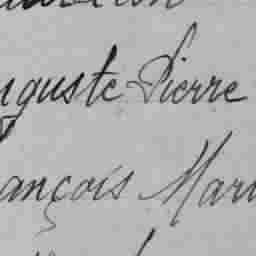 uguste Pierre
ançois Mari